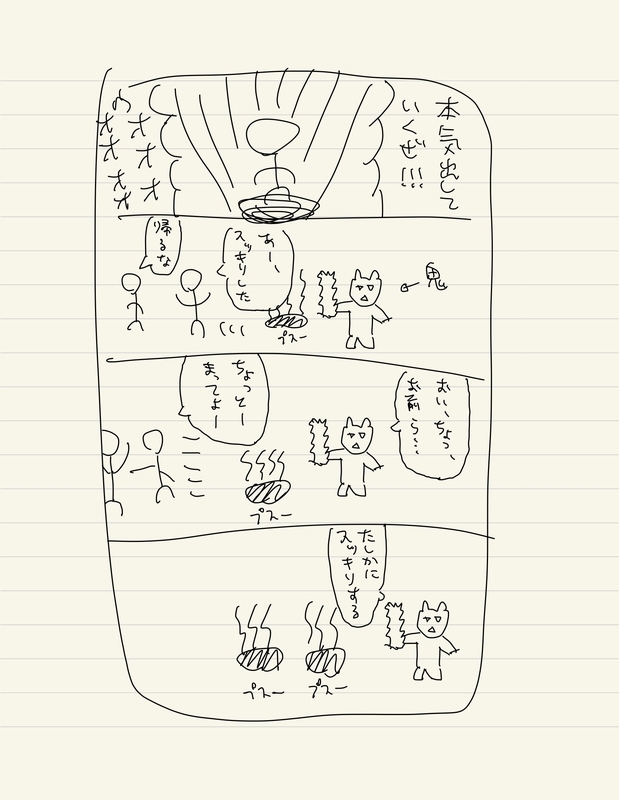 本気出して
いくぜ!!!
うオオオオ
オオオ
← 鬼
あー、
スッキリした
プスー
帰るな
おい、ちょっ、
お前ら…
ちょっとー
まってよー
プスー
たしかに
スッキリする
プスー
プスー